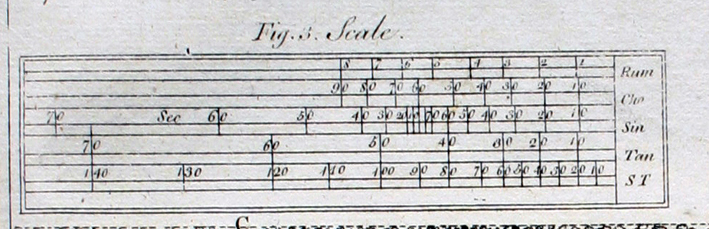 Fig. 5. Scale.
8 7 6 5 4 3 2 1 Rum
90 80 70 60 50 40 30 20 10 Cho
70 Sec 60 50 40 30 20 70 60 50 40 30 20 10 Sin
70 60 50 40 30 20 10 Tan
140 130 120 110 100 90 80 70 60 50 40 30 20 10 ST
G